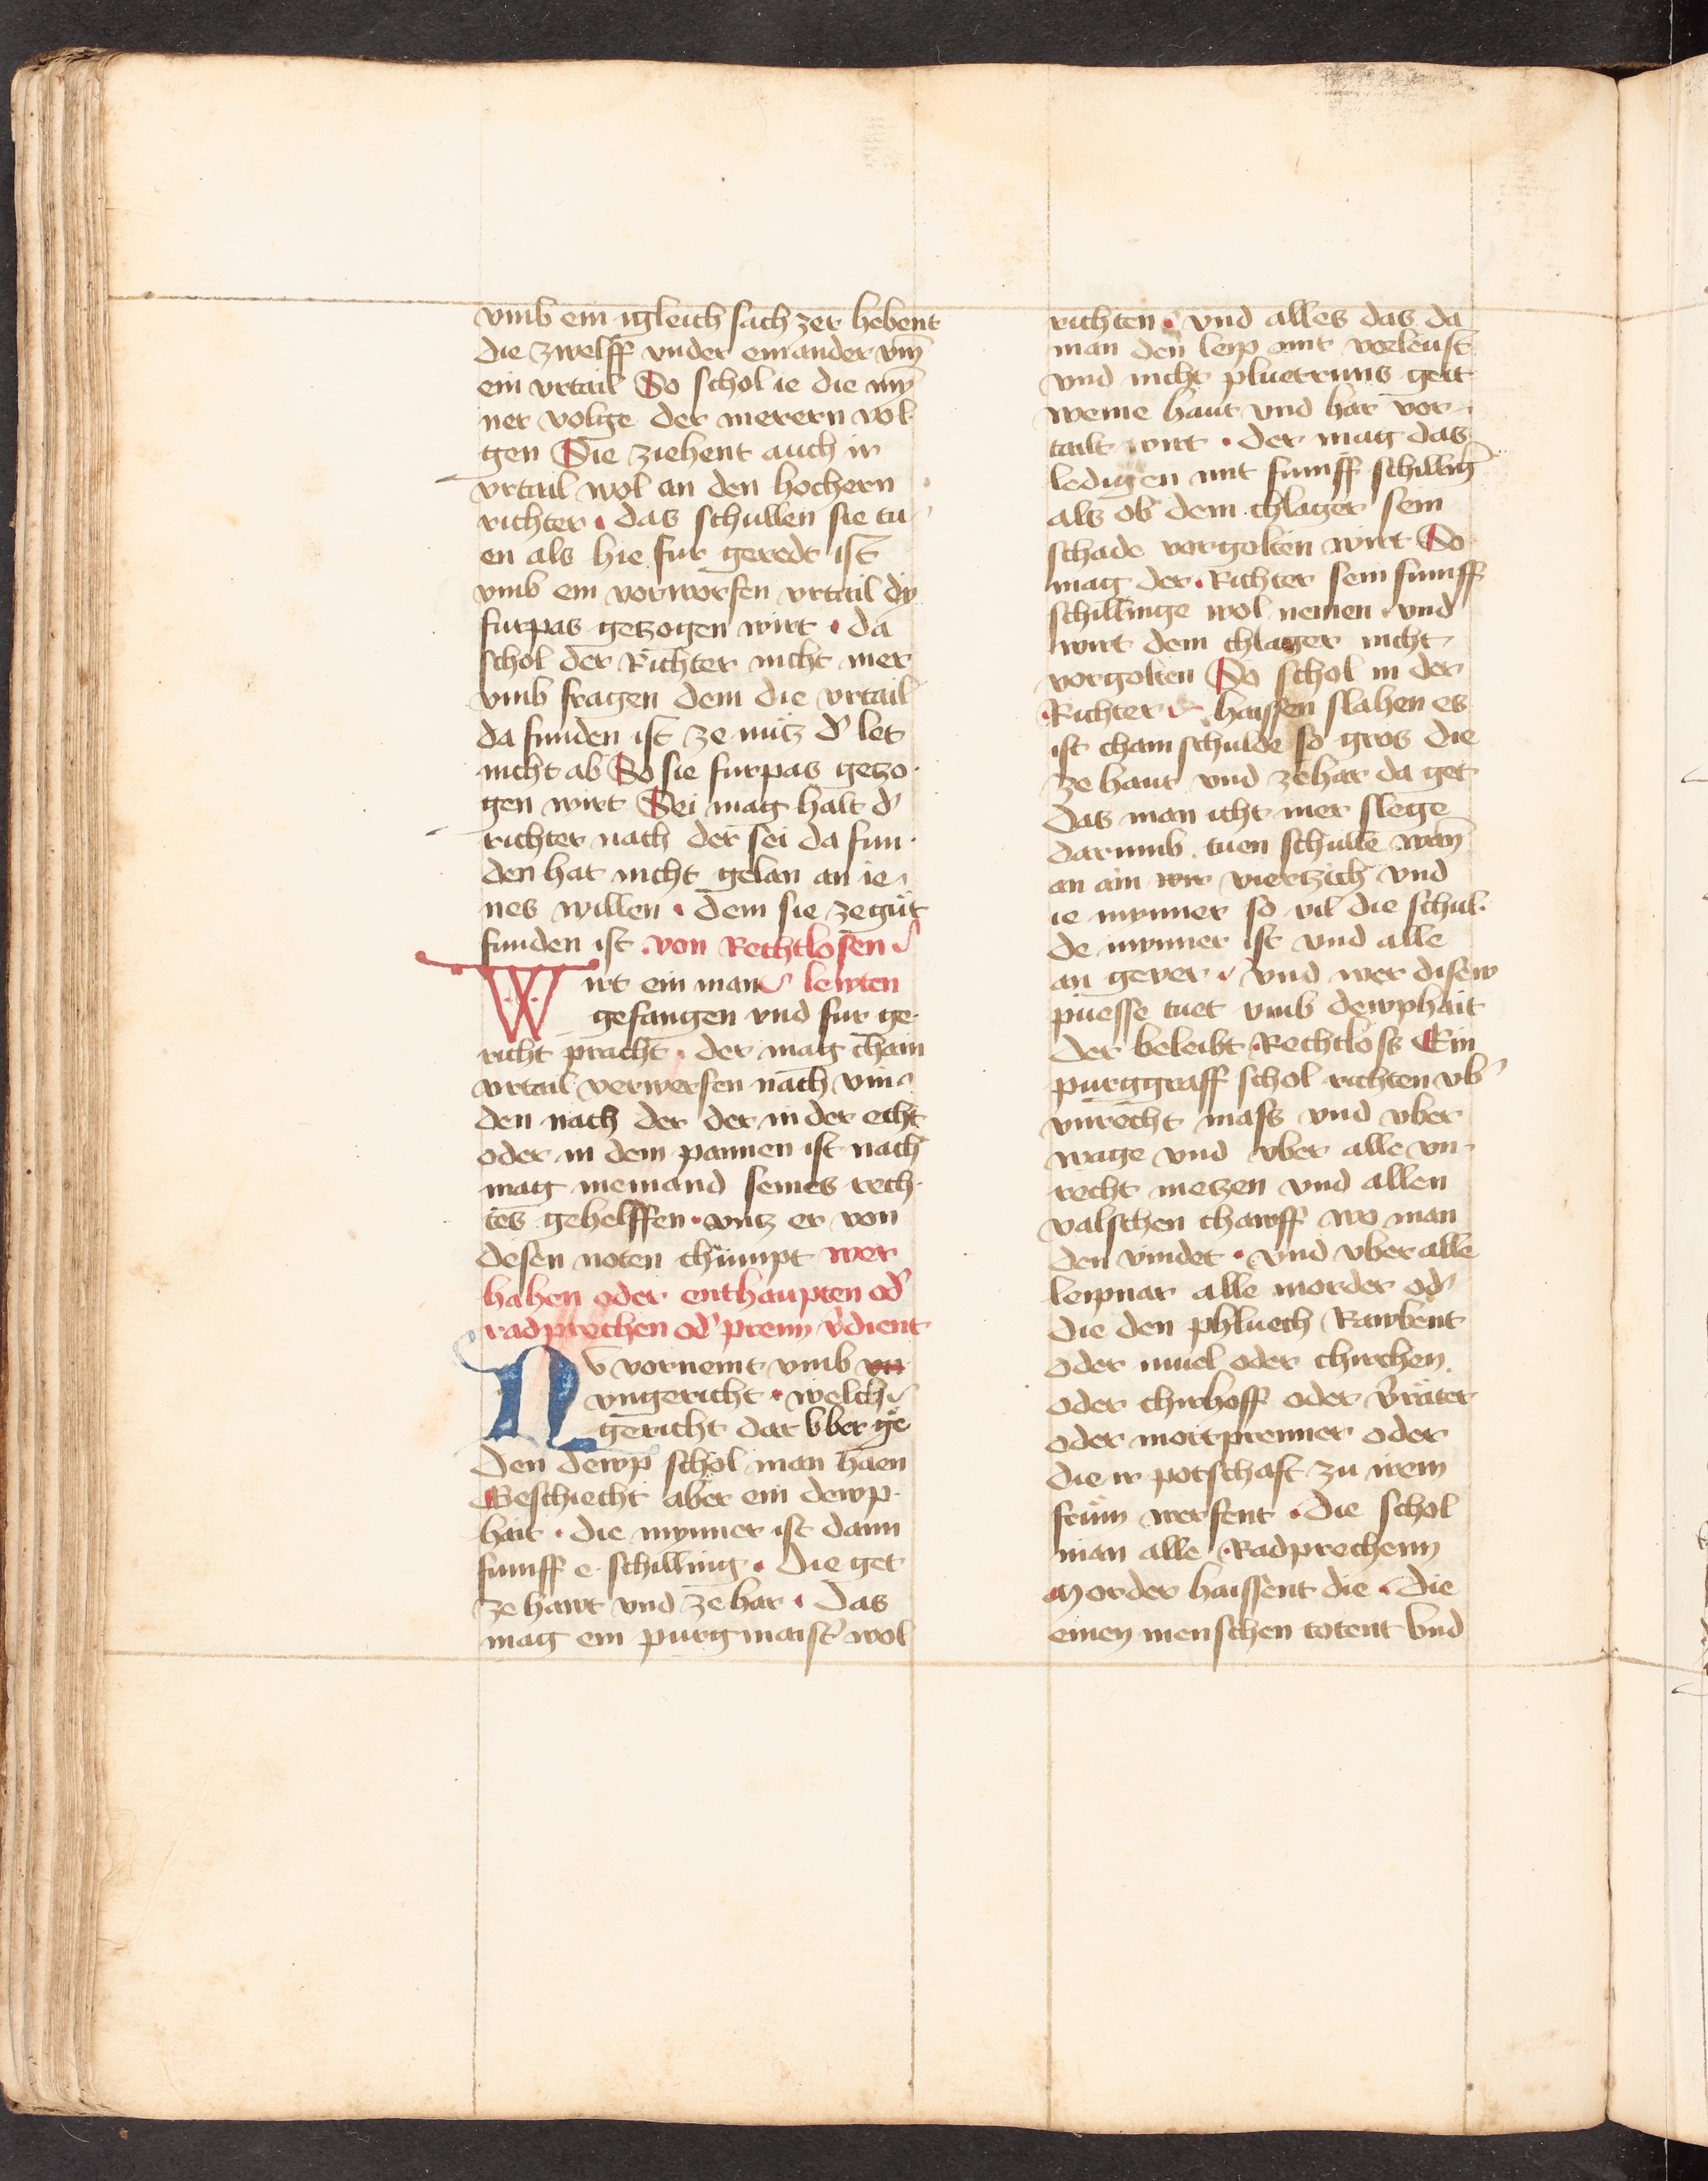 vmb ein igleich sach zer hebent
die zwelff vnder einander vm̄
ein vrtail So schol ie die mȳ
ner volge der merern vol
gen Sie ziehent auch ir
vrtail wol an den hochern
richter · das schullen sie tu
en als hie fur geredt ist
vmb ein vorworfen vrtail dy
furpas gezogen wirt · da
schol der Richter nicht mer
vmb fragen dem die vrtail
da funden ist ze nutz d' let
nicht ab So sie furpas gezo·
gen wirt Sei mag halt d'
richter nach der sei da fun·
den hat nicht gelan an ie
nes willen · dem sie ze gut
funden ist · von Rechtlosen
Wirt ein man lewten
gefangen vnd fur ge·
richt pracht · der mag cham
vrtail verwerfen nach vin
den nach der der in der echt
oder in dem pannen ist nach
mag niemand seines rech·
tes gehelffen · vntz er von
desen noten chumpt wer
hahen oder enthaupten od'
radprechen od' prenn v'dient
Nv vornemt vmb vn
vngericht · welch
gericht dar vber ge
Den dewp schol man haen
Geschiecht aber ein dewp·
hait · die mynner ist dann
funff e schilling · die get
ze hawt vnd ze har · Das
mag ein purgmaist' wol
richten · vnd alles das da
man den leip mit vorleust
vnd nicht pluetruns gett
weme haut vnd har vor
tailt wirt · der mag das
ledigen mit funff schilling
als ob dem chlager sein
schade vorgolten wirt So
mag der Richter sein funff
schillinge wol nemen · vnd
wirt dem chlager nicht
vorgolten So schol in der
Richter haissen slahen es
ist cham schulde so gros die
ze haut vnd ze har da get
das man icht mer slege
darumb tuen schulle wan̄
an ain wir viertzich vnd
ie mynner so vil die schul·
de mynner ist vnd alle
an gever · vnd wer disew
puesse tuet vmb dewphait
der beleibt Rechtloss Ein
purggraff schol richten vb'
vnrecht mass vnd vber
wage vnd vber alle vn·
recht metzen vnd allen
valschen chawff wo man
den vindet · vnd vber alle
leipnar alle morder od'
die den phluech Rawbent
oder muel oder chirchen
oder chirhoff oder v'räter
oder mortprenner oder
die ir potschaft zu irem
frum werfent · die schol
man alle · Radprechenn
Morder haissent die · die
einen menschen totent vnd